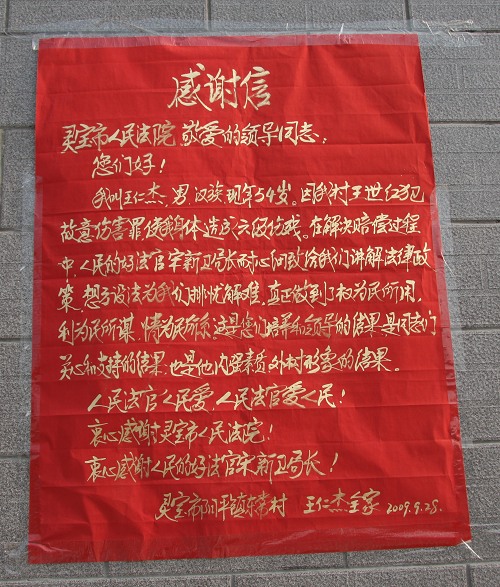 感谢信
灵宝市人民法院敬爱的领导同志:
您们好!
我叫王仁杰,男,汉族,现年54岁。因我村王世红犯
故意伤害罪使我身体造成六级伤残。在解决赔偿过程
中,人民的好法官宋新卫局长耐心向我给我们讲解法律政
策,想方设法为我们排忧解难,真正做到了权为民所用,
利为民所谋,情为民所系。这是您们培养和领导的结果,是同志们
关心和支持的结果,也是他内强素质,外树形象的结果。
人民法官人民爱,人民法官爱人民!
衷心感谢灵宝市人民法院!
衷心感谢人民的好法官宋新卫局长!
灵宝市阳平镇东常村 王仁杰全家 2009.9.28.